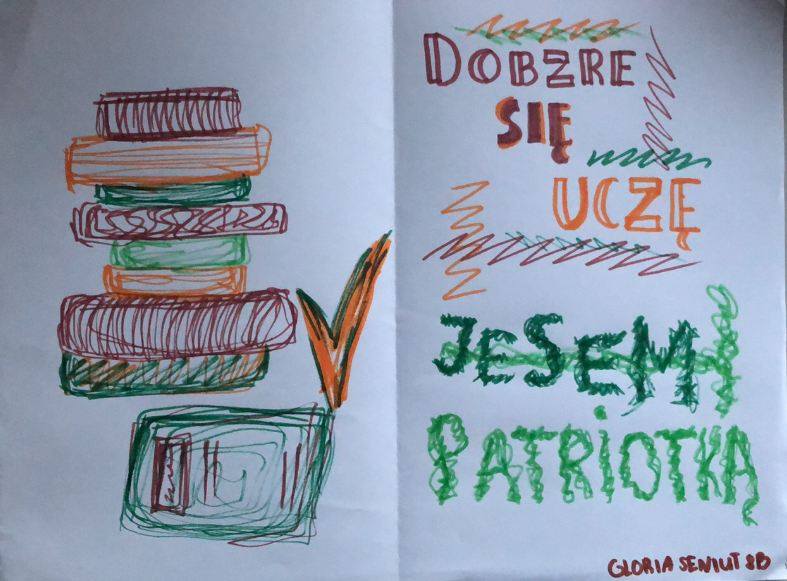 DOBZRE
SIĘ
UCZĘ
JeSEM
PATRiOTKĄ
GLORIA SENIUT 8B